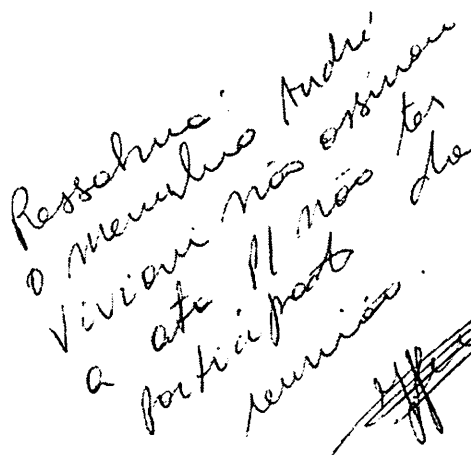 Ressalva:
o membro André
Viviani não assinou
a ata p/ não ter
participado da
reunião.